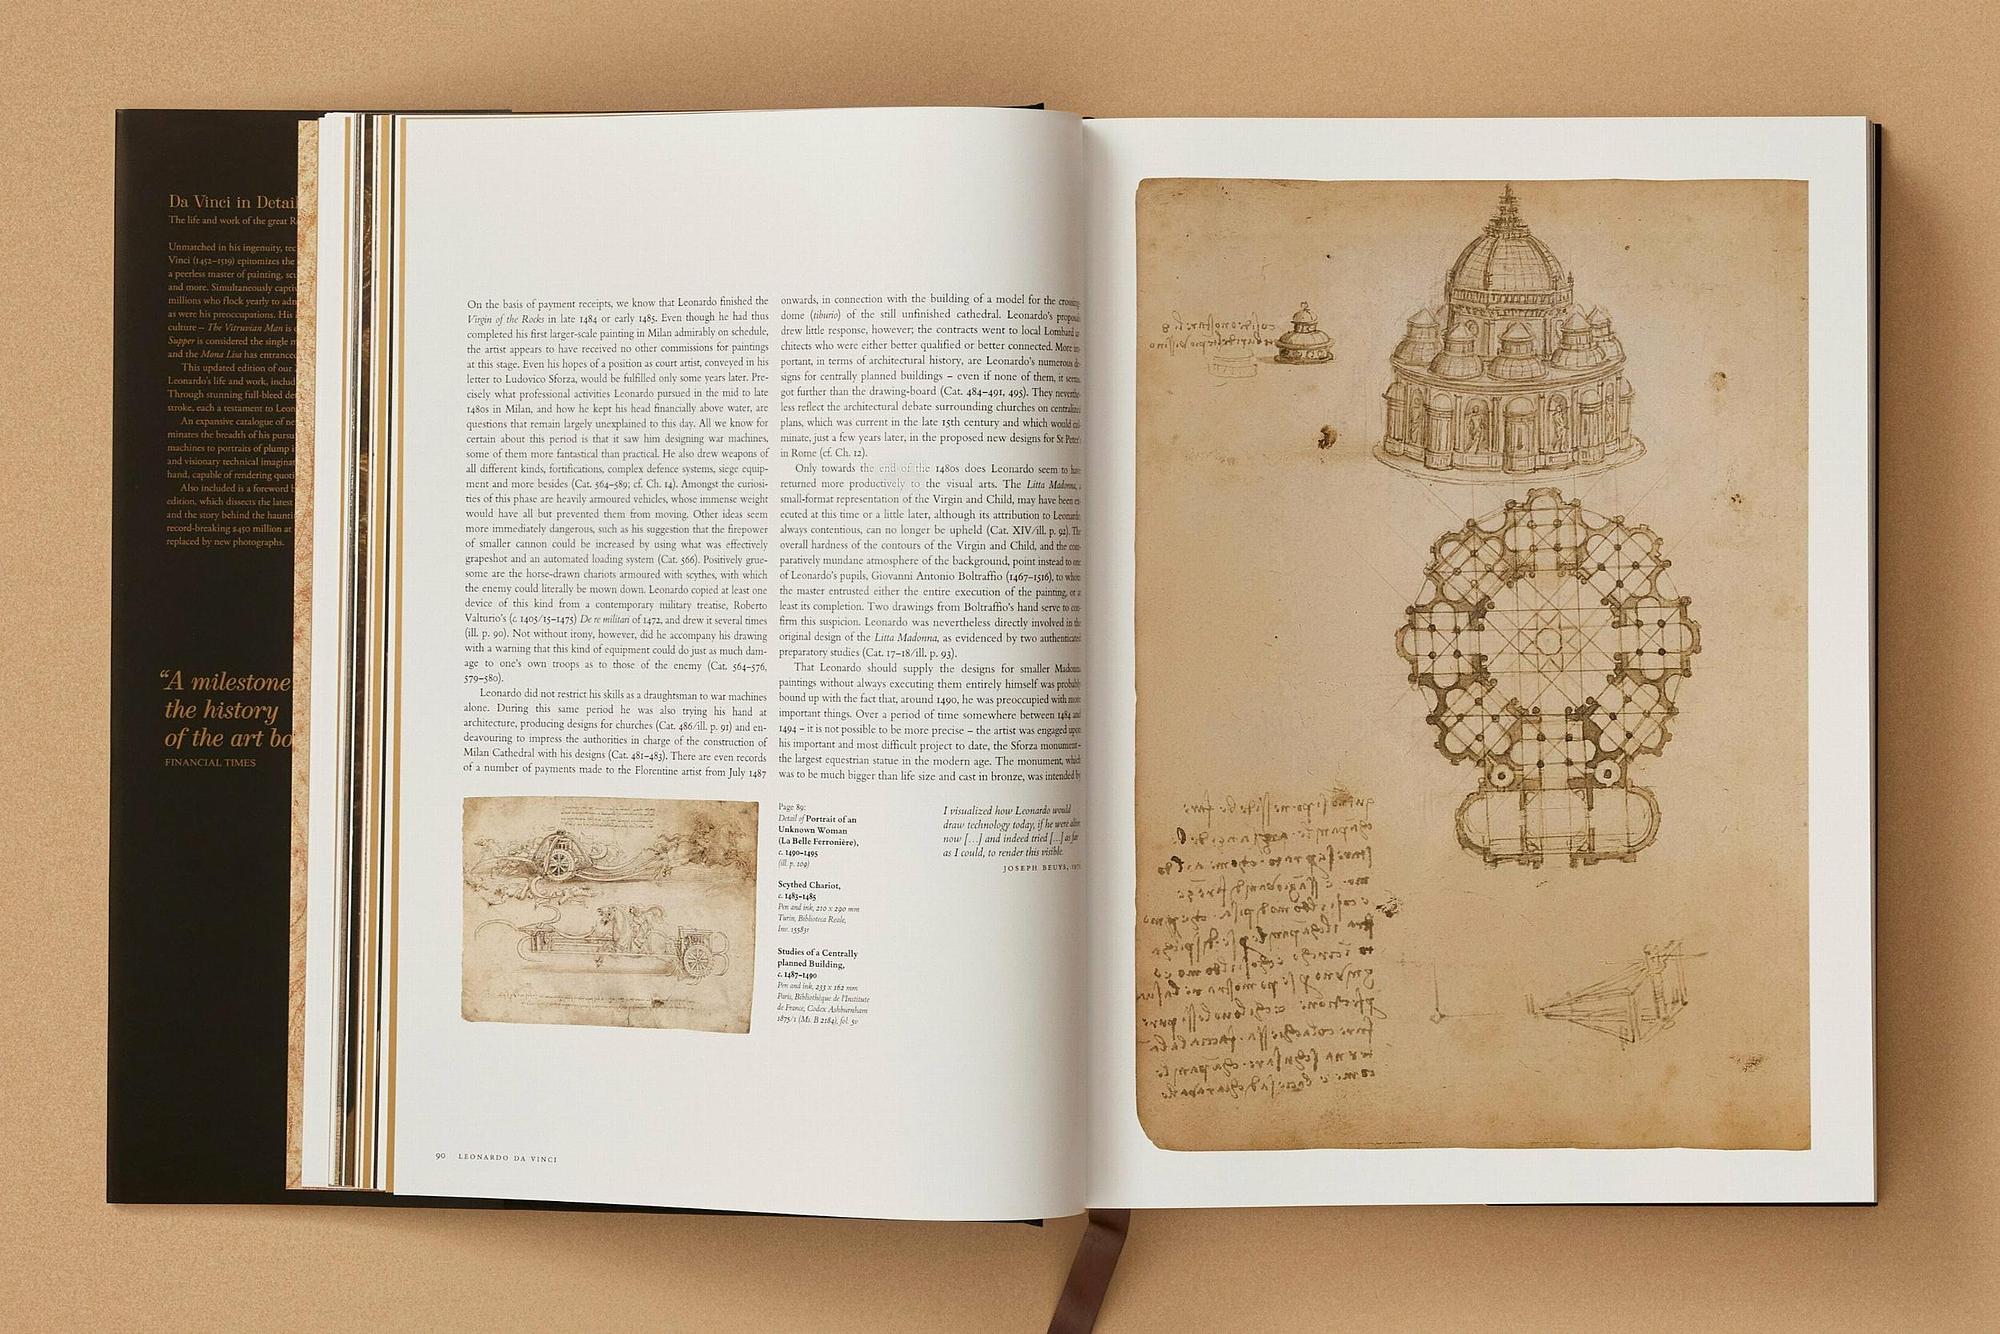 Da Vinci in Detail
The life and work of the great R
Unmatched in his ingenuity, tec
Vinci (1452–1519) epitomizes the
a peerless master of painting, scu
and more. Simultaneously captiv
millions who flock yearly to adm
as were his preoccupations. His
culture – The Vitruvian Man is
Supper is considered the single m
and the Mona Lisa has entranced
This updated edition of our
Leonardo's life and work, includ
Through stunning full-bleed det
stroke, each a testament to Leon
An expansive catalogue of ne
minates the breadth of his pursu
machines to portraits of plump i
and visionary technical imaginat
hand, capable of rendering quoti
Also included is a foreword b
edition, which dissects the latest
and the story behind the haunti
record-breaking $450 million at
replaced by new photographs.
“A milestone
the history
of the art bo
FINANCIAL TIMES
On the basis of payment receipts, we know that Leonardo finished the
Virgin of the Rocks in late 1484 or early 1485. Even though he had thus
completed his first larger-scale painting in Milan admirably on schedule,
the artist appears to have received no other commissions for paintings
at this stage. Even his hopes of a position as court artist, conveyed in his
letter to Ludovico Sforza, would be fulfilled only some years later. Pre-
cisely what professional activities Leonardo pursued in the mid to late
1480s in Milan, and how he kept his head financially above water, are
questions that remain largely unexplained to this day. All we know for
certain about this period is that it saw him designing war machines,
some of them more fantastical than practical. He also drew weapons of
all different kinds, fortifications, complex defence systems, siege equip-
ment and more besides (Cat. 564–589; cf. Ch. 14). Amongst the curiosi-
ties of this phase are heavily armoured vehicles, whose immense weight
would have all but prevented them from moving. Other ideas seem
more immediately dangerous, such as his suggestion that the firepower
of smaller cannon could be increased by using what was effectively
grapeshot and an automated loading system (Cat. 566). Positively grue-
some are the horse-drawn chariots armoured with scythes, with which
the enemy could literally be mown down. Leonardo copied at least one
device of this kind from a contemporary military treatise, Roberto
Valturio's (c. 1405/15–1475) De re militari of 1472, and drew it several times
(ill. p. 90). Not without irony, however, did he accompany his drawing
with a warning that this kind of equipment could do just as much dam-
age to one's own troops as to those of the enemy (Cat. 564–576,
579–580).
Leonardo did not restrict his skills as a draughtsman to war machines
alone. During this same period he was also trying his hand at
architecture, producing designs for churches (Cat. 486/ill. p. 91) and en-
deavouring to impress the authorities in charge of the construction of
Milan Cathedral with his designs (Cat. 481–483). There are even records
of a number of payments made to the Florentine artist from July 1487
onwards, in connection with the building of a model for the crossing-
dome (tiburio) of the still unfinished cathedral. Leonardo's proposals
drew little response, however; the contracts went to local Lombard ar-
chitects who were either better qualified or better connected. More im-
portant, in terms of architectural history, are Leonardo's numerous de-
signs for centrally planned buildings – even if none of them, it seems,
got further than the drawing-board (Cat. 484–491, 495). They neverthe-
less reflect the architectural debate surrounding churches on centralized
plans, which was current in the late 15th century and which would cul-
minate, just a few years later, in the proposed new designs for St Peter's
in Rome (cf. Ch. 12).
Only towards the end of the 1480s does Leonardo seem to have
returned more productively to the visual arts. The Litta Madonna, a
small-format representation of the Virgin and Child, may have been ex-
ecuted at this time or a little later, although its attribution to Leonardo,
always contentious, can no longer be upheld (Cat. XIV/ill. p. 92). The
overall hardness of the contours of the Virgin and Child, and the com-
paratively mundane atmosphere of the background, point instead to one
of Leonardo's pupils, Giovanni Antonio Boltraffio (1467–1516), to whom
the master entrusted either the entire execution of the painting, or at
least its completion. Two drawings from Boltraffio's hand serve to con-
firm this suspicion. Leonardo was nevertheless directly involved in the
original design of the Litta Madonna, as evidenced by two authenticated
preparatory studies (Cat. 17–18/ill. p. 93).
That Leonardo should supply the designs for smaller Madonna
paintings without always executing them entirely himself was probably
bound up with the fact that, around 1490, he was preoccupied with more
important things. Over a period of time somewhere between 1484 and
1494 – it is not possible to be more precise – the artist was engaged upon
his important and most difficult project to date, the Sforza monument –
the largest equestrian statue in the modern age. The monument, which
was to be much bigger than life size and cast in bronze, was intended by
Page 89:
Detail of Portrait of an
Unknown Woman
(La Belle Ferronière),
c. 1490–1495
(ill. p. 109)
Scythed Chariot,
c. 1483–1485
Pen and ink, 210 x 290 mm
Turin, Biblioteca Reale,
Inv. 15583r
Studies of a Centrally
planned Building,
c. 1487–1490
Pen and ink, 233 x 162 mm
Paris, Bibliothèque de l'Institute
de France, Codex Ashburnham
1875/1 (Ms. B 2184), fol. 5v
I visualized how Leonardo would
draw technology today, if he were alive
now […] and indeed tried […] as far
as I could, to render this visible.
JOSEPH BEUYS,
90 LEONARDO DA VINCI